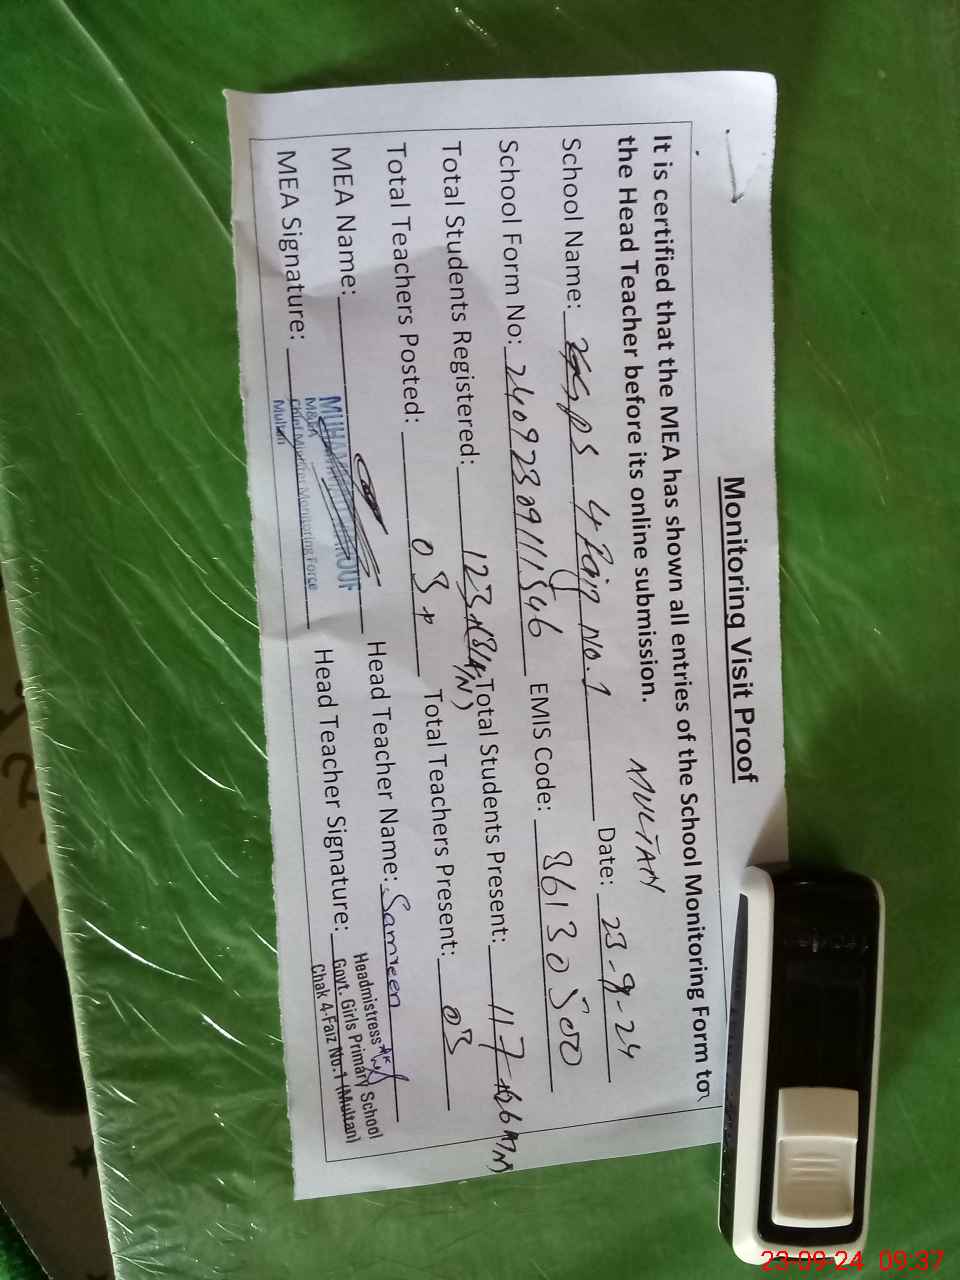 Monitoring Visit Proof
It is certified that the MEA has shown all entries of the School Monitoring Form to
the Head Teacher before its online submission. MULTAN
School Name: GGPS 4 Faiz No.1 Date: 23-9-24
School Form No: 24092309111546 EMIS Code: 36130500
Total Students Registered: 123 Total Students Present: 117
Total Teachers Posted: 03 Total Teachers Present: 03
MEA Name: Head Teacher Name: Samreen
MEA Signature: Head Teacher Signature:
M&EA
Chief Minister Monitoring Force
Multan
Headmistress
Govt. Girls Primary School
Chak 4-Faiz No.1 (Multan)
23-09-24 09:37